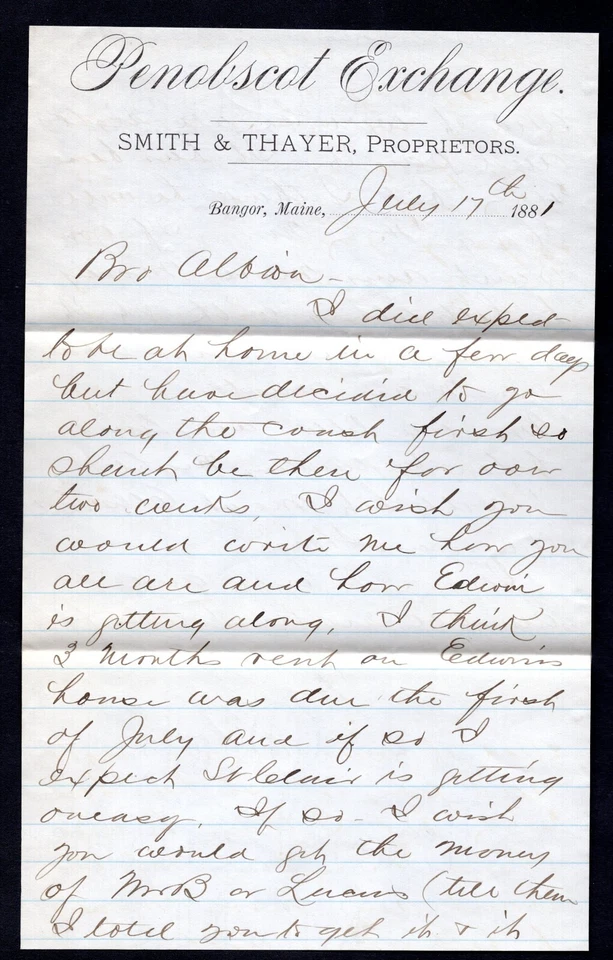 Penobscot Exchange.
SMITH & THAYER, PROPRIETORS.
Bangor, Maine, July 17th 1881
Bro Albion -
I did expect
to be at home in a few days
but have decided to go
along the coast first so
shant be there for over
two weeks. I wish you
would write me how you
all are and how Edwin
is getting along. I think
3 months rent on Edwins
house was due the first
of July and if so I
expect St Clair is getting
uneasy. If so - I wish
you would get the money
of Mr B or Lucius (tell them
I told you to get it & it